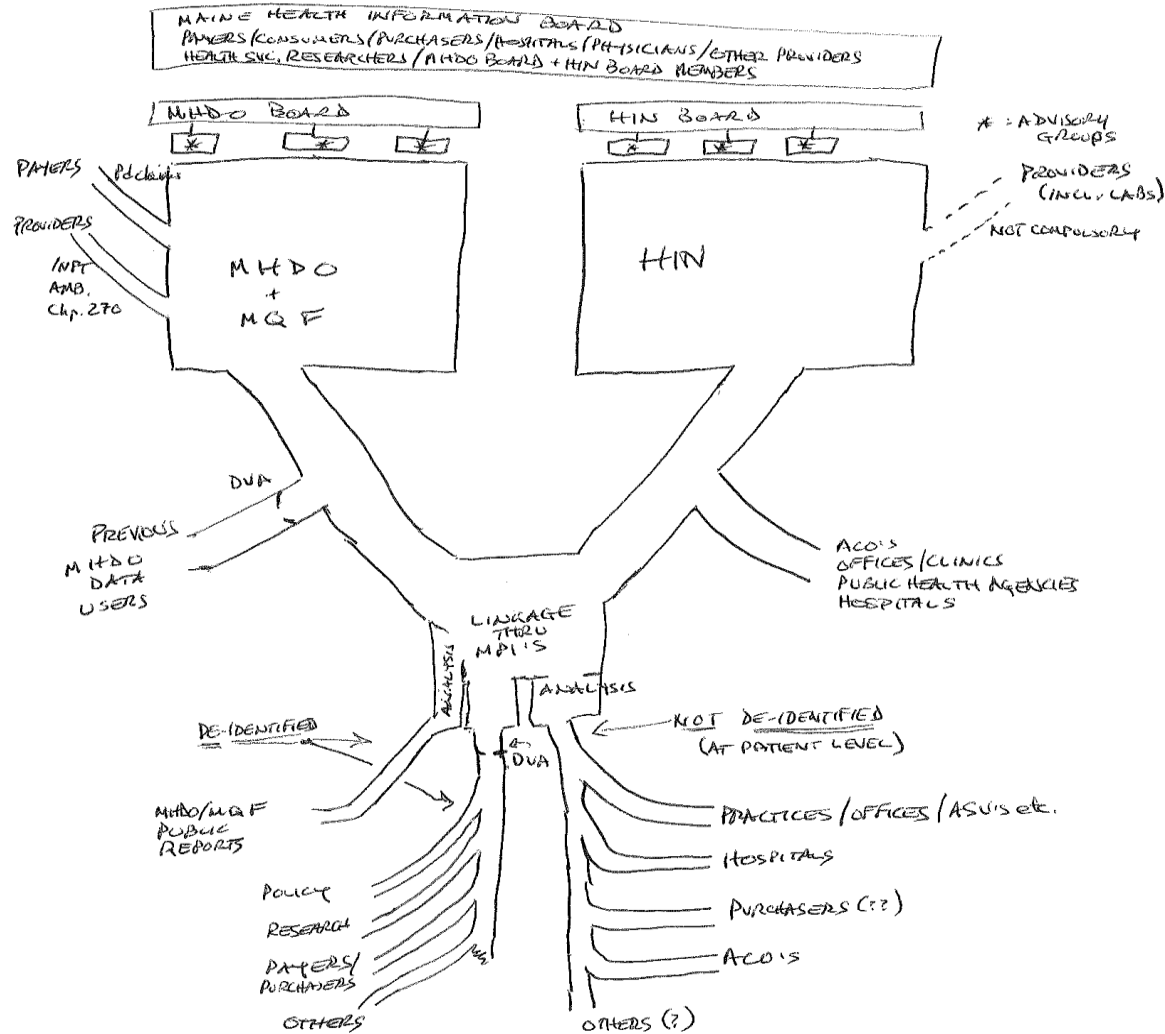 MAINE HEALTH INFORMATION BOARD
PAYERS/CONSUMERS/PURCHASERS/HOSPITALS/PHYSICIANS/OTHER PROVIDERS
HEALTH SVC. RESEARCHERS/MHDO BOARD + HIN BOARD MEMBERS
MHDO BOARD
HIN BOARD
* * *
* * *
* : ADVISORY
GROUPS
PAYERS
Pd claims
PROVIDERS
INPT
AMB.
Chp. 270
MHDO
+
MQF
HIN
PROVIDERS
(INCL. LABS)
NOT COMPULSORY
DUA
PREVIOUS
MHDO
DATA
USERS
ACO'S
OFFICES/CLINICS
PUBLIC HEALTH AGENCIES
HOSPITALS
LINKAGE
THRU
MPI'S
ANALYSIS
ANALYSIS
DE-IDENTIFIED
NOT DE-IDENTIFIED
(AT PATIENT LEVEL)
DUA
MHDO/MQF
PUBLIC
REPORTS
POLICY
RESEARCH
PAYERS/
PURCHASERS
OTHERS
PRACTICES/OFFICES/ASU'S etc.
HOSPITALS
PURCHASERS (??)
ACO'S
OTHERS (?)